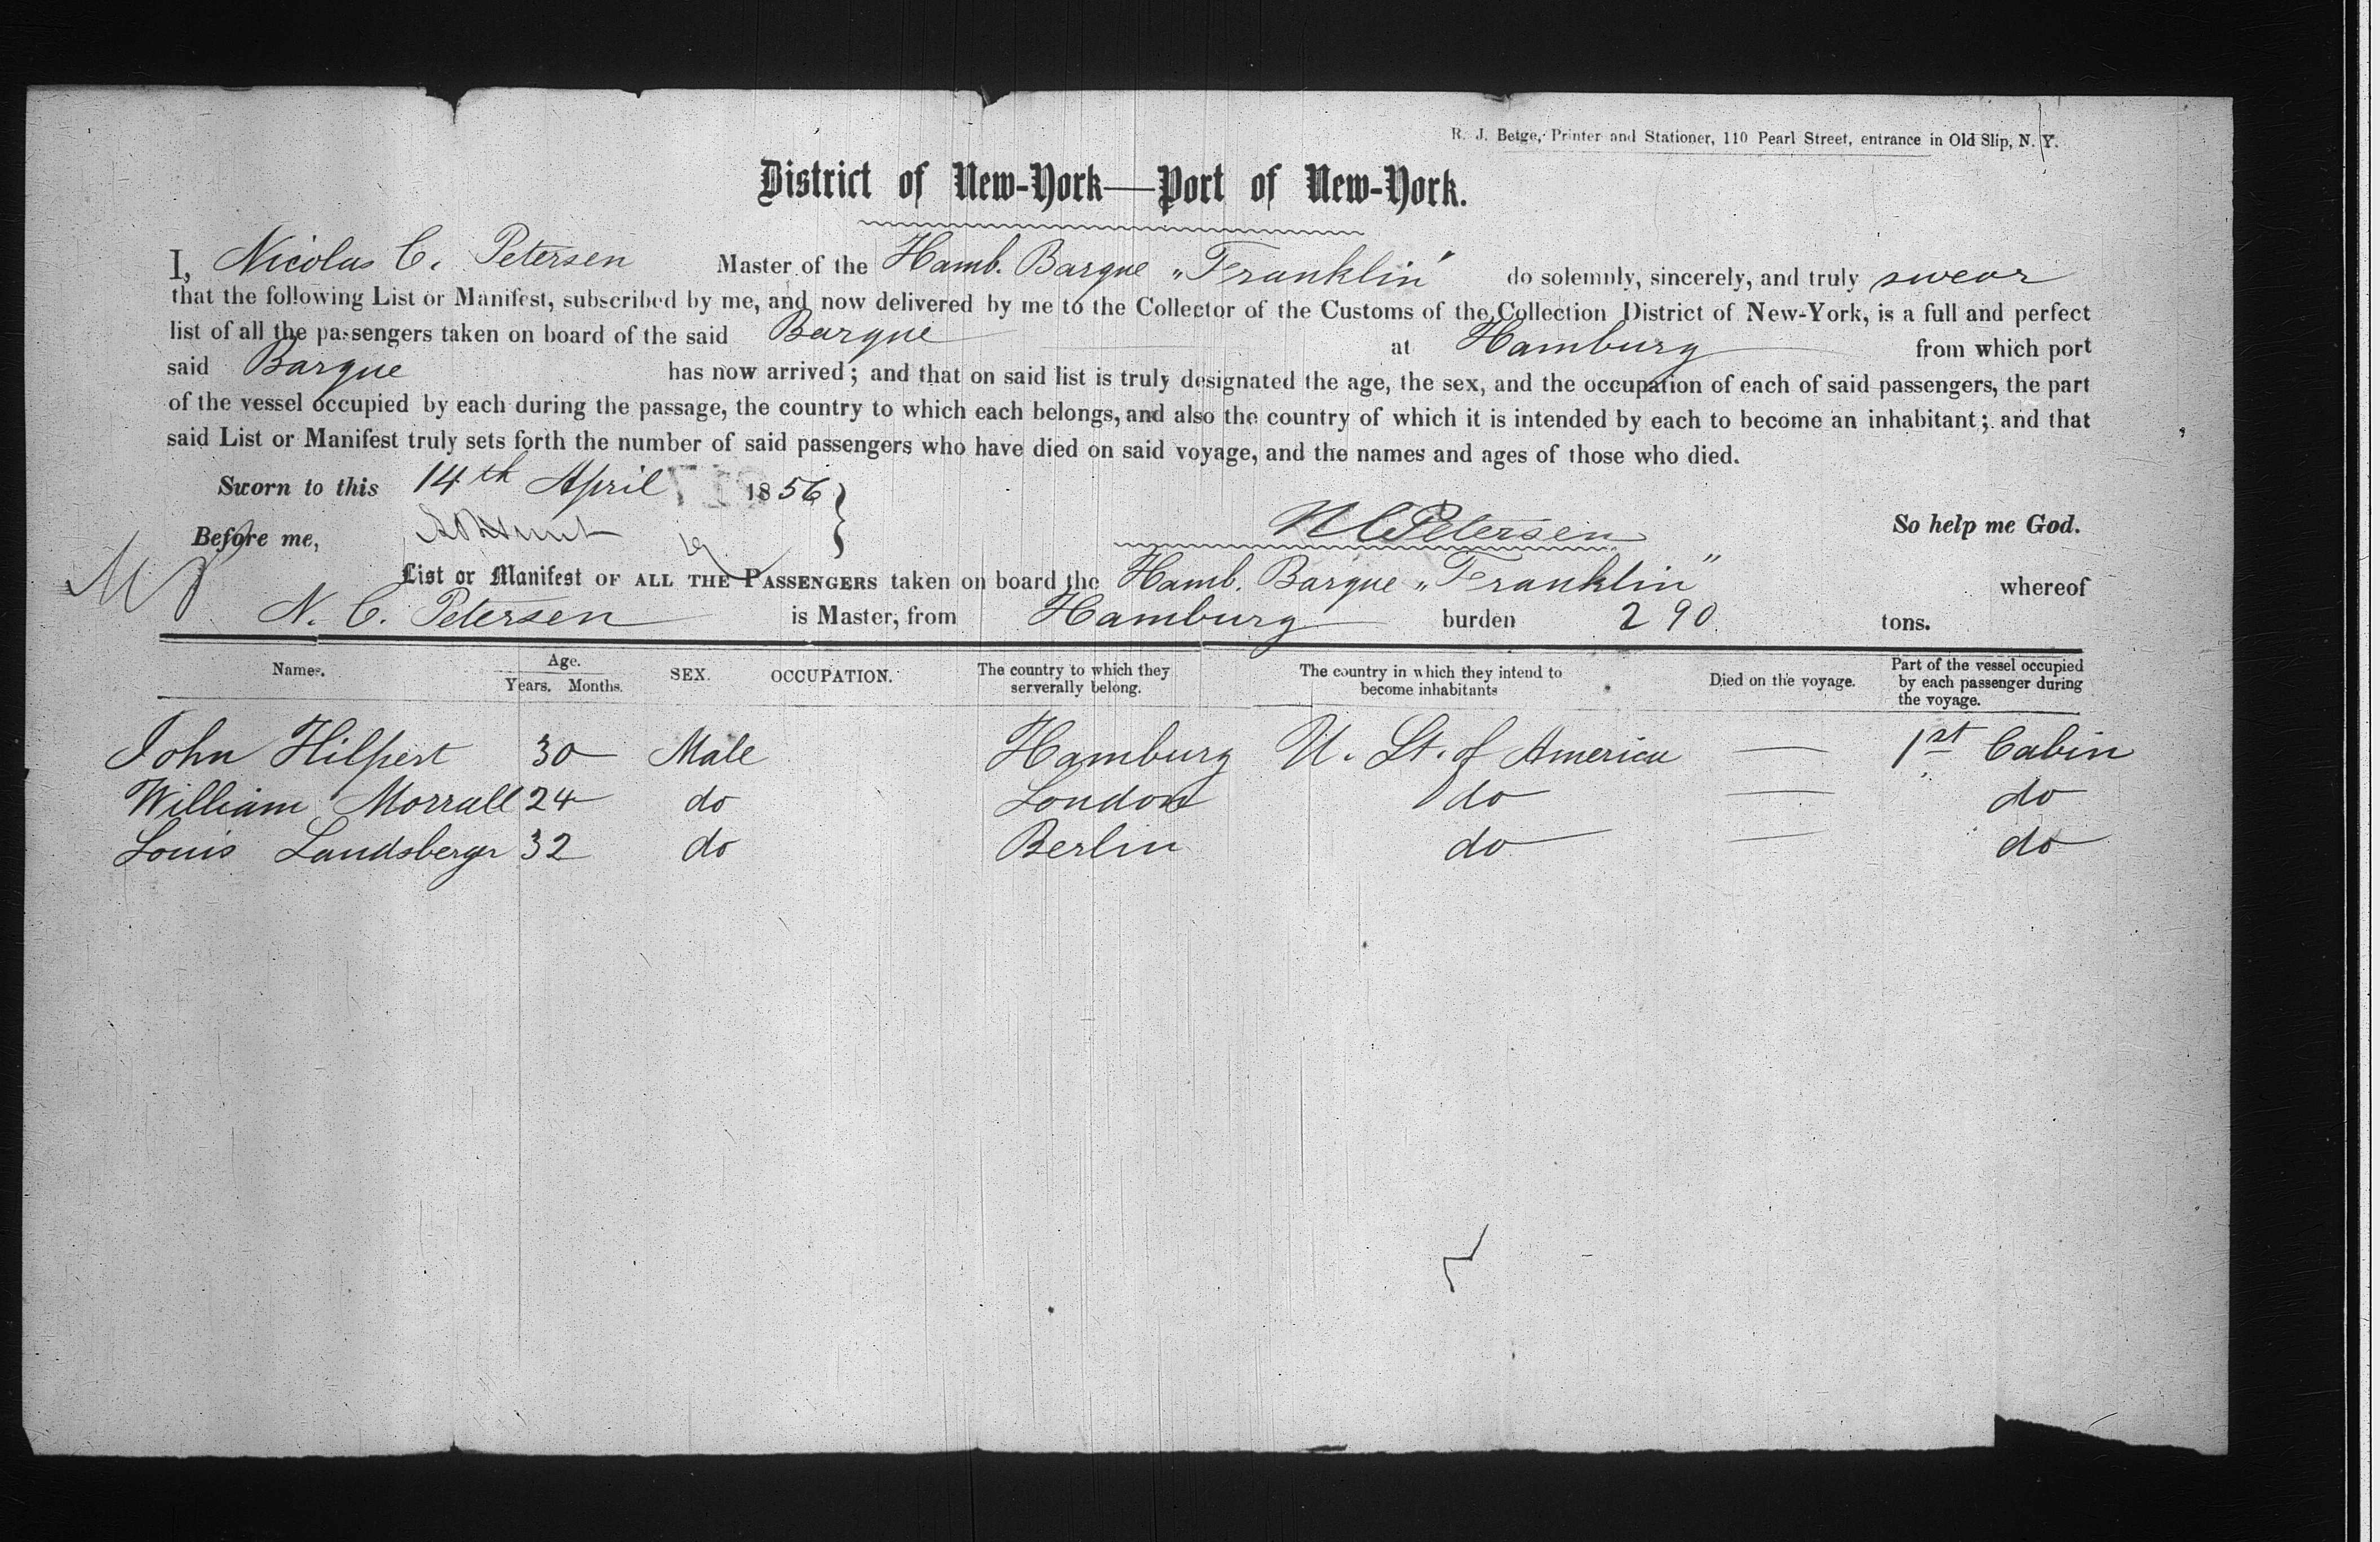 R. J. Betge, Printer and Stationer, 110 Pearl Street, entrance in Old Slip, N. Y.
District of New-York—Port of New-York.
I, Nicolas C. Petersen Master of the Hamb. Barque „Franklin" do solemnly, sincerely, and truly swear
that the following List or Manifest, subscribed by me, and now delivered by me to the Collector of the Customs of the Collection District of New-York, is a full and perfect
list of all the passengers taken on board of the said Barque at Hamburg from which port
said Barque has now arrived; and that on said list is truly designated the age, the sex, and the occupation of each of said passengers, the part
of the vessel occupied by each during the passage, the country to which each belongs, and also the country of which it is intended by each to become an inhabitant; and that
said List or Manifest truly sets forth the number of said passengers who have died on said voyage, and the names and ages of those who died.
Sworn to this 14th April 1856
Before me, N C Petersen So help me God.
List or Manifest OF ALL THE PASSENGERS taken on board the Hamb. Barque „Franklin" whereof
N. C. Petersen is Master, from Hamburg burden 290 tons.
Names. Age. Years. Months. SEX. OCCUPATION. The country to which they serverally belong. The country in which they intend to become inhabitants Died on the voyage. Part of the vessel occupied by each passenger during the voyage.
John Hilpert 30 Male Hamburg U. St. of America — 1st Cabin
William Morrall 24 do London do — do
Louis Landsbergr 32 do Berlin do — do